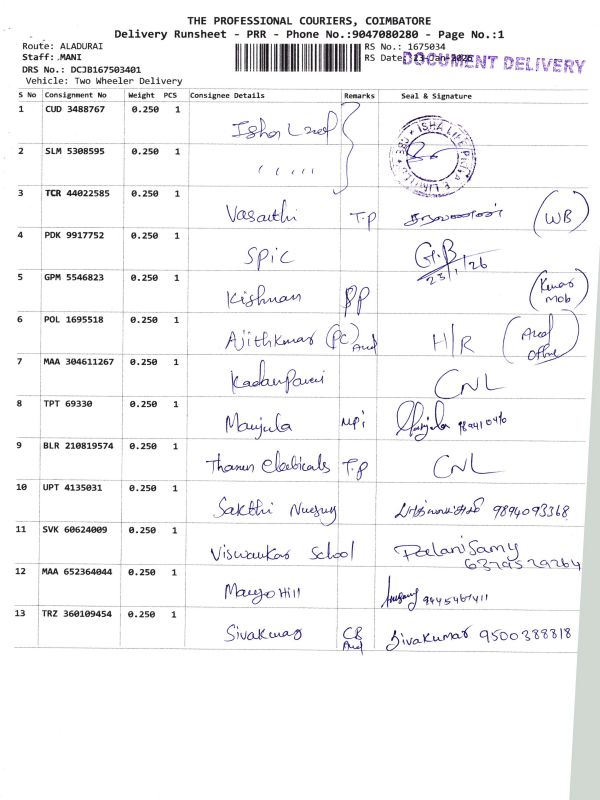 THE PROFESSIONAL COURIERS, COIMBATORE
Delivery Runsheet - PRR - Phone No.:9047080280 - Page No.:1
Route: ALADURAI
Staff: MANI
DRS No.: DCJB167503401
Vehicle: Two Wheeler Delivery
RS No.: 1675034
RS Date: 23-Jan-2026
DOCUMENT DELIVERY
S No Consignment No Weight PCS Consignee Details Remarks Seal & Signature
1 CUD 3488767 0.250 1 Isha
ISHA LIFE
2 SLM 5308595 0.250 1
3 TCR 44022585 0.250 1 Vasanthi T.P சரவணன் (WB)
4 PDK 9917752 0.250 1 SPIC G.B
23/1/26
5 GPM 5546823 0.250 1 Kishnan PP (Kumar
Mob)
6 POL 1695518 0.250 1 Ajithkumar (PC) H/R
7 MAA 304611267 0.250 1 CNL
8 TPT 69330 0.250 1 Manjula MPI Manjula
9 BLR 210819574 0.250 1 Electricals T.P CNL
10 UPT 4135031 0.250 1 Sakthi 9894093368
11 SVK 60624009 0.250 1 School PalaniSamy
6379529264
12 MAA 652364044 0.250 1 Hill
13 TRZ 360109454 0.250 1 Sivakumar CB SivaKumar 9500388818